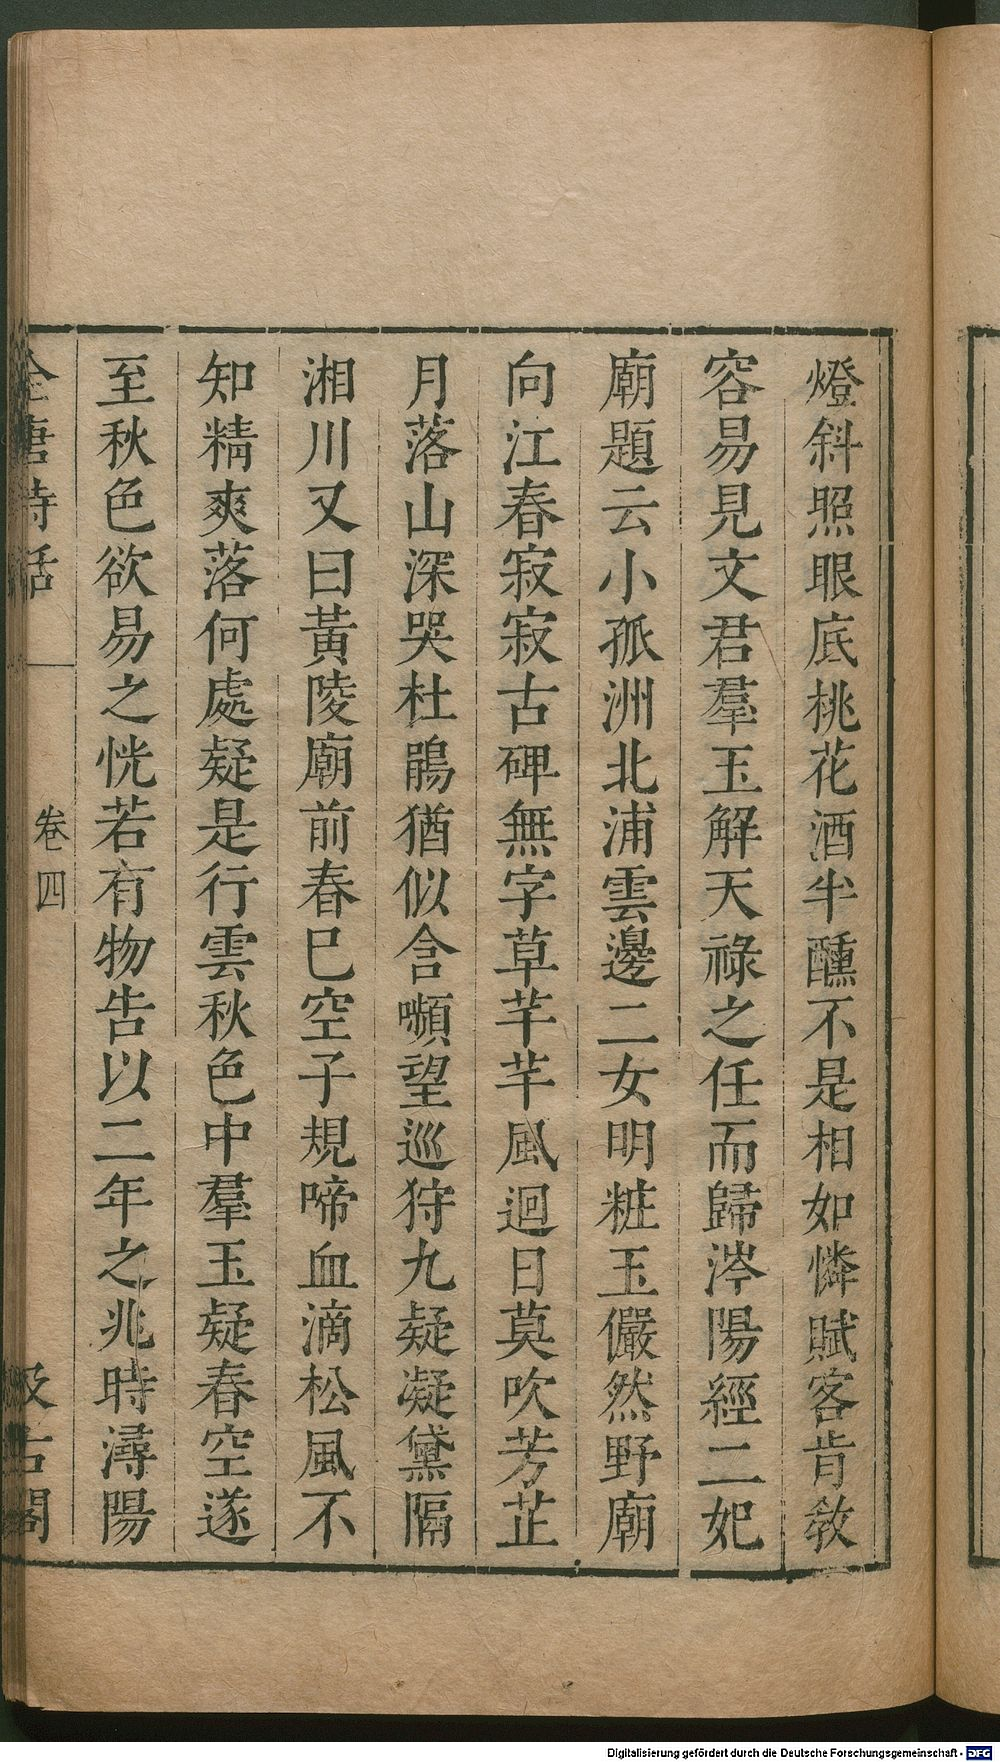 燈斜照眼底桃花酒半醺不是相如憐賦客肯教
容易見文君羣玉解天祿之任而歸涔陽經二妃
廟題云小孤洲北浦雲邊二女明粧玉儼然野廟
向江春寂寂古碑無字草芊芊風迴日莫吹芳芷
月落山深哭杜鵑猶似含嚬望巡狩九疑凝黛隔
湘川又曰黃陵廟前春巳空子規啼血滴松風不
知精爽落何處疑是行雲秋色中羣玉疑春空遂
至秋色欲易之恍若有物告以二年之兆時潯陽
全唐詩話
卷四
汲古閣
Digitalisierung gefördert durch die Deutsche Forschungsgemeinschaft - DFG